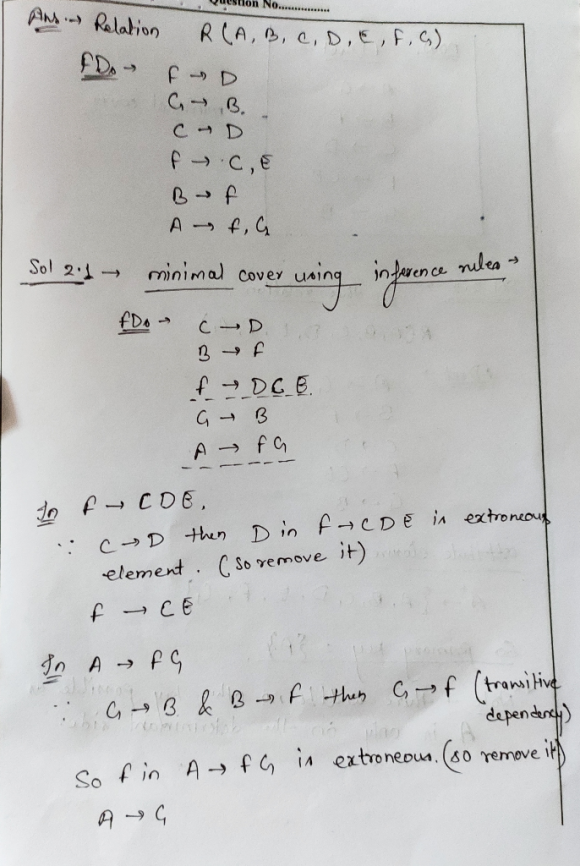 Question No...............
Ans. → Relation R (A, B, C, D, E, F, G)
FDs → F → D
G → B.
C → D
F → C, E
B → F
A → F, G
Sol 2.1 → minimal cover using inference rules →
FDs → C → D
B → F
F → DCE.
G → B
A → FG
In F → CDE,
∵ C → D then D in F → CDE is extroneous
element. (so remove it)
F → CE
In A → FG
∵ G → B & B → F then G → F (transitive
dependency)
So F in A → FG is extroneous. (so remove it)
A → G